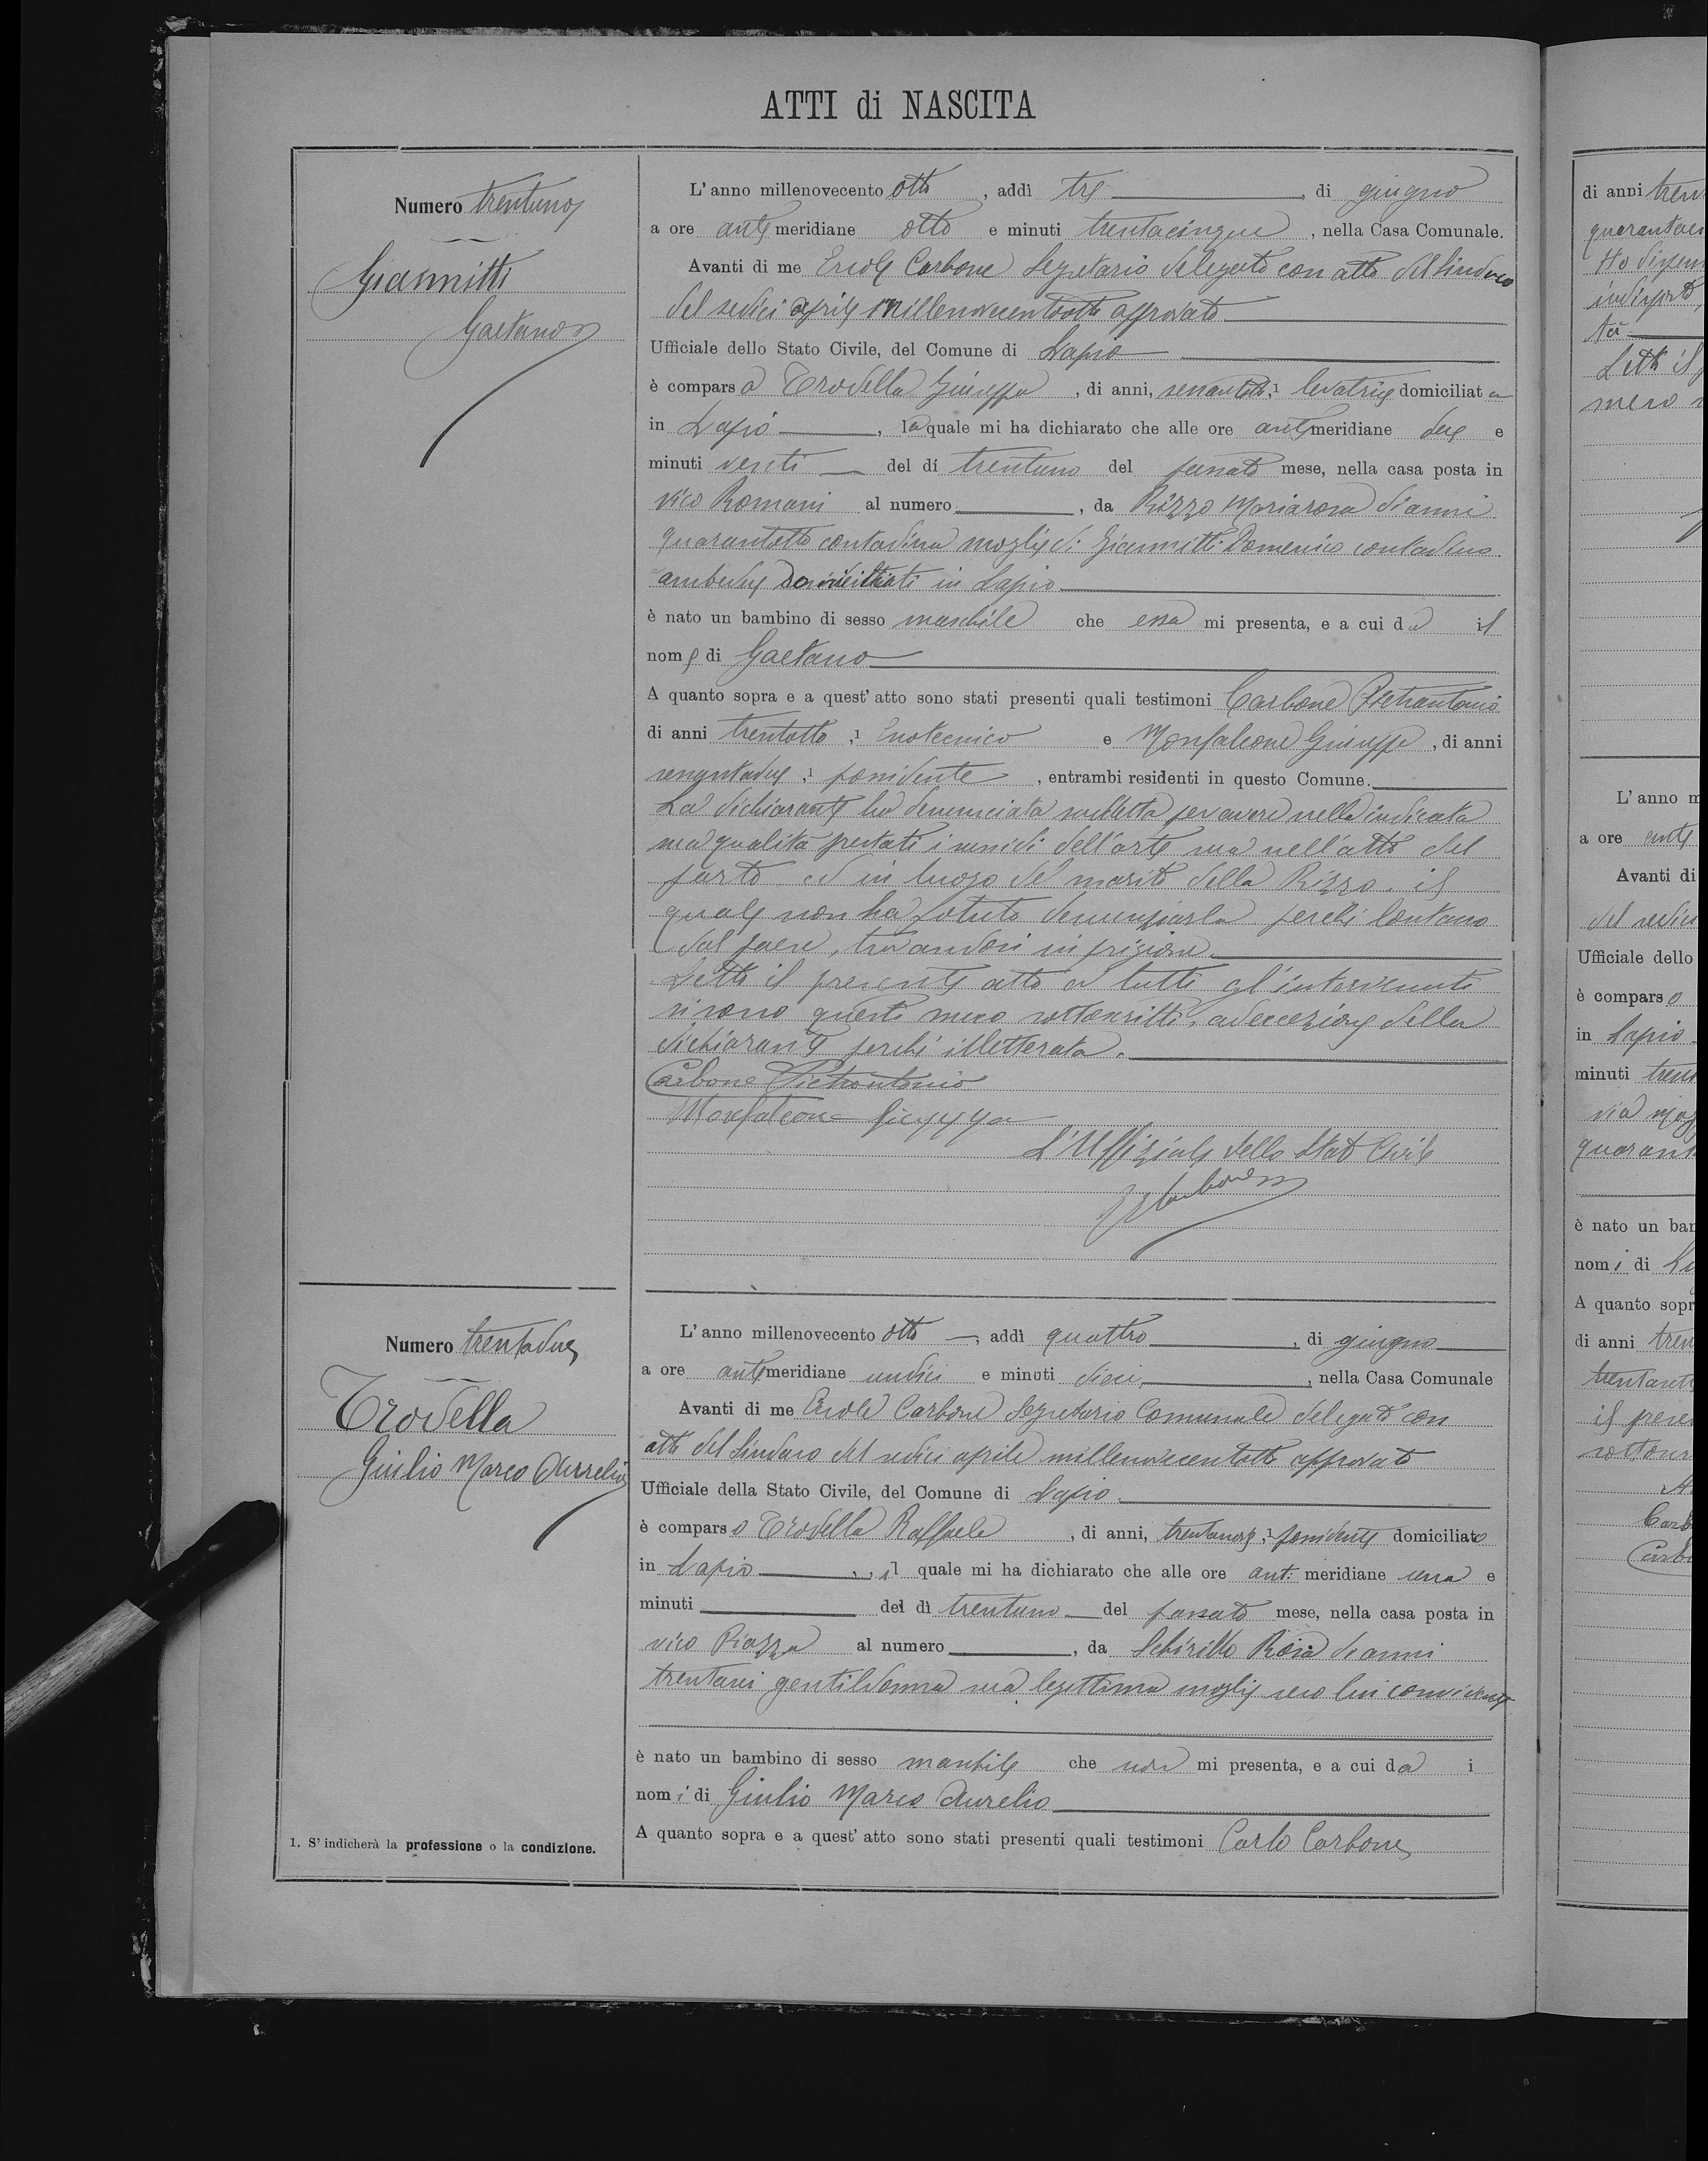 ATTI di NASCITA
Numero trentuno
Giannitti
Gaetano
L'anno millenovecento otto, addì tre, di giugno
a ore antimeridiane otto e minuti trentacinque, nella Casa Comunale.
Avanti di me Ercole Carbone Segretario delegato con atto del Sindaco
del sedici aprile millenovecentootto approvato
Ufficiale dello Stato Civile, del Comune di Lapio
è comparsa Trodella Giuseppa, di anni, sessantotto, 1 levatrice domiciliata
in Lapio, la quale mi ha dichiarato che alle ore antimeridiane due e
minuti venti del dí trentuno del passato mese, nella casa posta in
vico Romani al numero, da Rizzo Mariarosa di anni
quarantotto contadina moglie di Giannitti Domenico contadino
ambedue domiciliati in Lapio
è nato un bambino di sesso maschile che essa mi presenta, e a cui dà il
nome di Gaetano
A quanto sopra e a quest'atto sono stati presenti quali testimoni Carbone Pietrantonio
di anni trentotto, 1 Enotecnico e Monfalcone Giuseppe, di anni
sessantadue, 1 possidente, entrambi residenti in questo Comune.
La dichiarante ha denunciata suddetta per avere nella indicata
sua qualità prestati i sussidi dell'arte sua nell'atto del
parto, ed in luogo del marito della Rizzo, il
quale non ha potuto denunziarla perchè lontano
dal paese, trovandosi in prigione.
Letto il presente atto a tutti gl'intervenuti
si sono questi meco sottoscritti, ad eccezione della
dichiarante perchè illetterata.
Carbone Pietrantonio
Monfalcone Giuseppe
L'Uffiziale dello Stato Civile
E Carbone
Numero trentadue
Trodella
Giulio Marco Aurelio
L'anno millenovecento otto, addì quattro, di giugno
a ore antimeridiane undici e minuti dieci, nella Casa Comunale
Avanti di me Ercole Carbone Segretario Comunale delegato con
atto del Sindaco del sedici aprile millenovecentotto approvato
Ufficiale della Stato Civile, del Comune di Lapio.
è comparso Trodella Raffaele, di anni, trentanove, 1 possidente domiciliato
in Lapio, il quale mi ha dichiarato che alle ore ant: meridiane una e
minuti del dì trentuno del passato mese, nella casa posta in
vico Piazza al numero, da Schirillo Rosa di anni
trentasei gentildonna sua legittima moglie seco lui convivente
è nato un bambino di sesso maschile che non mi presenta, e a cui dà i
nomi di Giulio Marco Aurelio
A quanto sopra e a quest'atto sono stati presenti quali testimoni Carlo Carbone
1. S'indicherà la professione o la condizione.
di anni
Letto il
meco
L'anno
a ore ante
Avanti di
Ufficiale dello
è comparso
in Lapio
minuti
via
è nato un
nomi di
A quanto
di anni